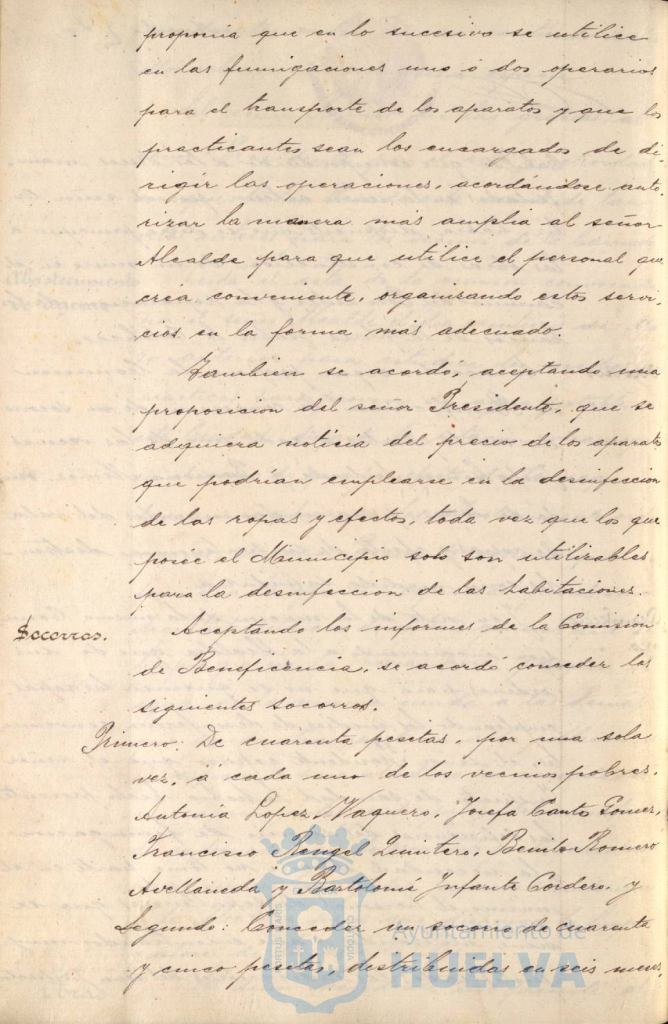 proponía que en lo sucesivo se utilice
en las fumigaciones uno ó dos operarios
para el transporte de los aparatos y que los
practicantes sean los encargados de di-
rigir las operaciones, acordándose auto-
rizar la manera más amplia al señor
Alcalde para que utilice el personal que
crea conveniente, organizando estos servi-
cios en la forma más adecuado.
Tambien se acordó, aceptando una
proposicion del señor Presidente, que se
adquiera noticia del precio de los aparatos
que podrían emplearse en la desinfeccion
de las ropas y efectos, toda vez que los que
posée el Municipio solo son utilizables
para la desinfeccion de las habitaciones.
Socorros.
Aceptando los informes de la Comision
de Beneficencia, se acordó conceder los
siguientes socorros.
Primero: De cuarenta pesetas, por una sola
vez, á cada uno de los vecinos pobres,
Antonia Lopez Vaquero, Josefa Canto Gomez,
Francisco Rengel Quintero, Benito Romero
Avellaneda y Bartolomé Infante Cordero, y
Segundo: Conceder un socorro de cuarenta
y cinco pesetas, distribuidas en seis meses,
Ayuntamiento de
HUELVA